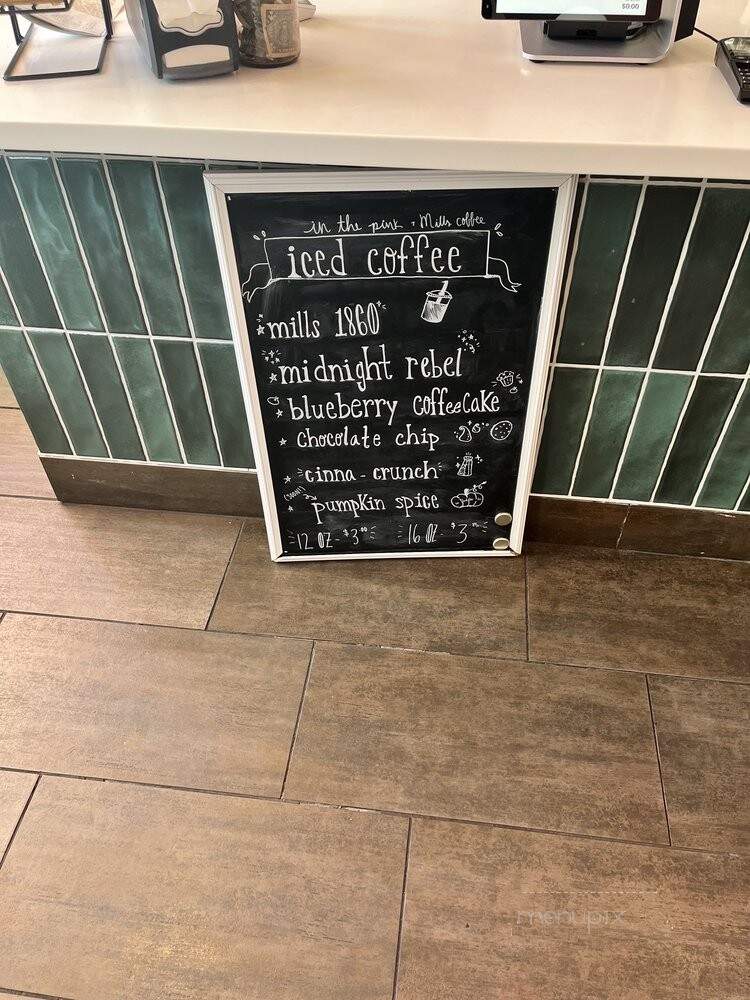 $0.00
in the pink + Mills coffee
iced coffee
mills 1860
midnight rebel
blueberry coffeecake
chocolate chip
cinna-crunch
pumpkin spice
12 oz - $3 16 oz - $3
menupix